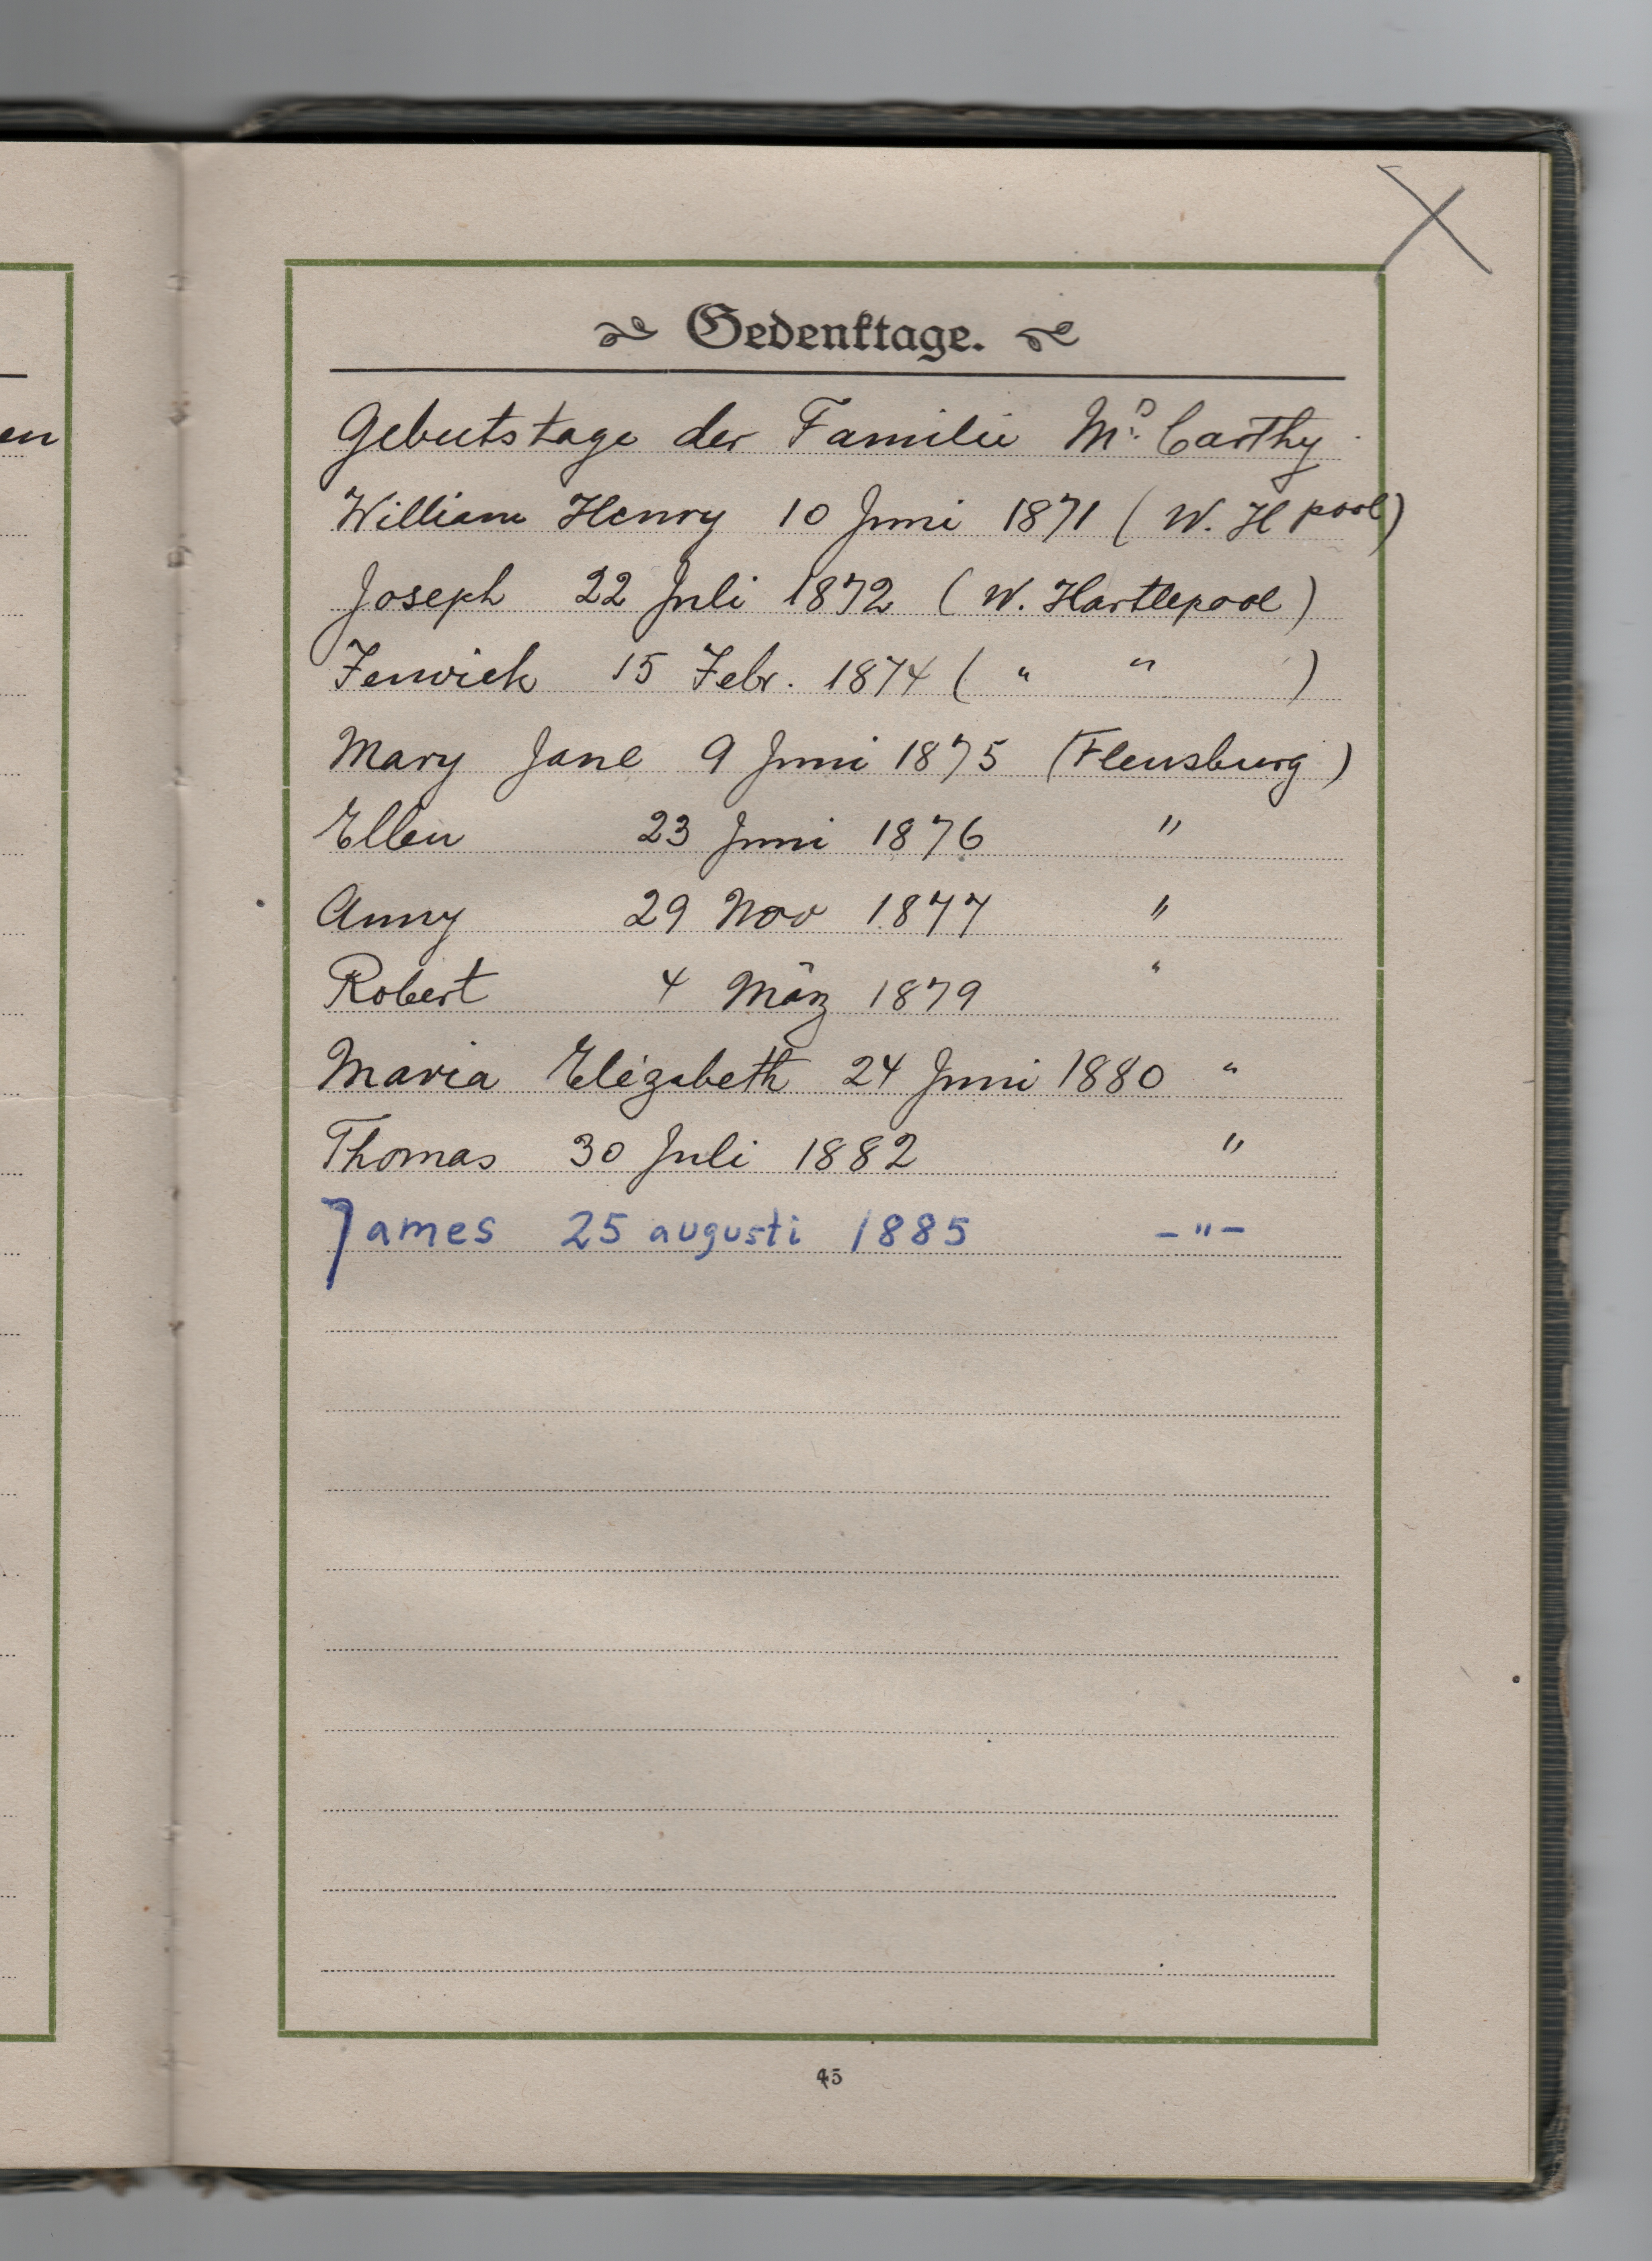 en
Gedenktage.
Geburtstage der Familie Mc. Carthy
William Henry 10 Juni 1871 ( W. H pool)
Joseph 22 Juli 1872 ( W. Hartlepool )
Fenwick 15 Febr. 1874 ( " " )
Mary Jane 9 Juni 1875 (Flensburg )
Ellen 23 Juni 1876 "
Anny 29 Nov 1877 "
Robert 4 März 1879 "
Maria Elizabeth 24 Juni 1880 "
Thomas 30 Juli 1882 "
James 25 augusti 1885 - " -
45